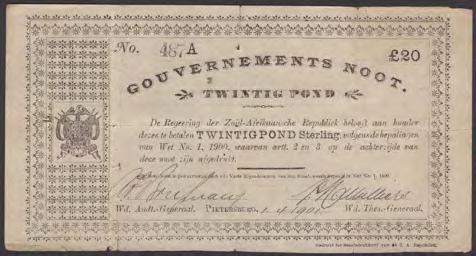 No. 487A
£20
GOUVERNEMENTS NOOT.
TWINTIG POND
De Regeering der Zuid-Afrikaansche Republiek belooft aan houder
dezes te betalen TWINTIG POND Sterling, volgens de bepalingen
van Wet No. 1, 1900, waarvan artt. 2 en 3 op de achterzijde van
deze noot zijn afgedrukt.
Wd. Audt.-Generaal. PIETERSBURG, 1-4-1901 Wd. Thes.-Generaal.